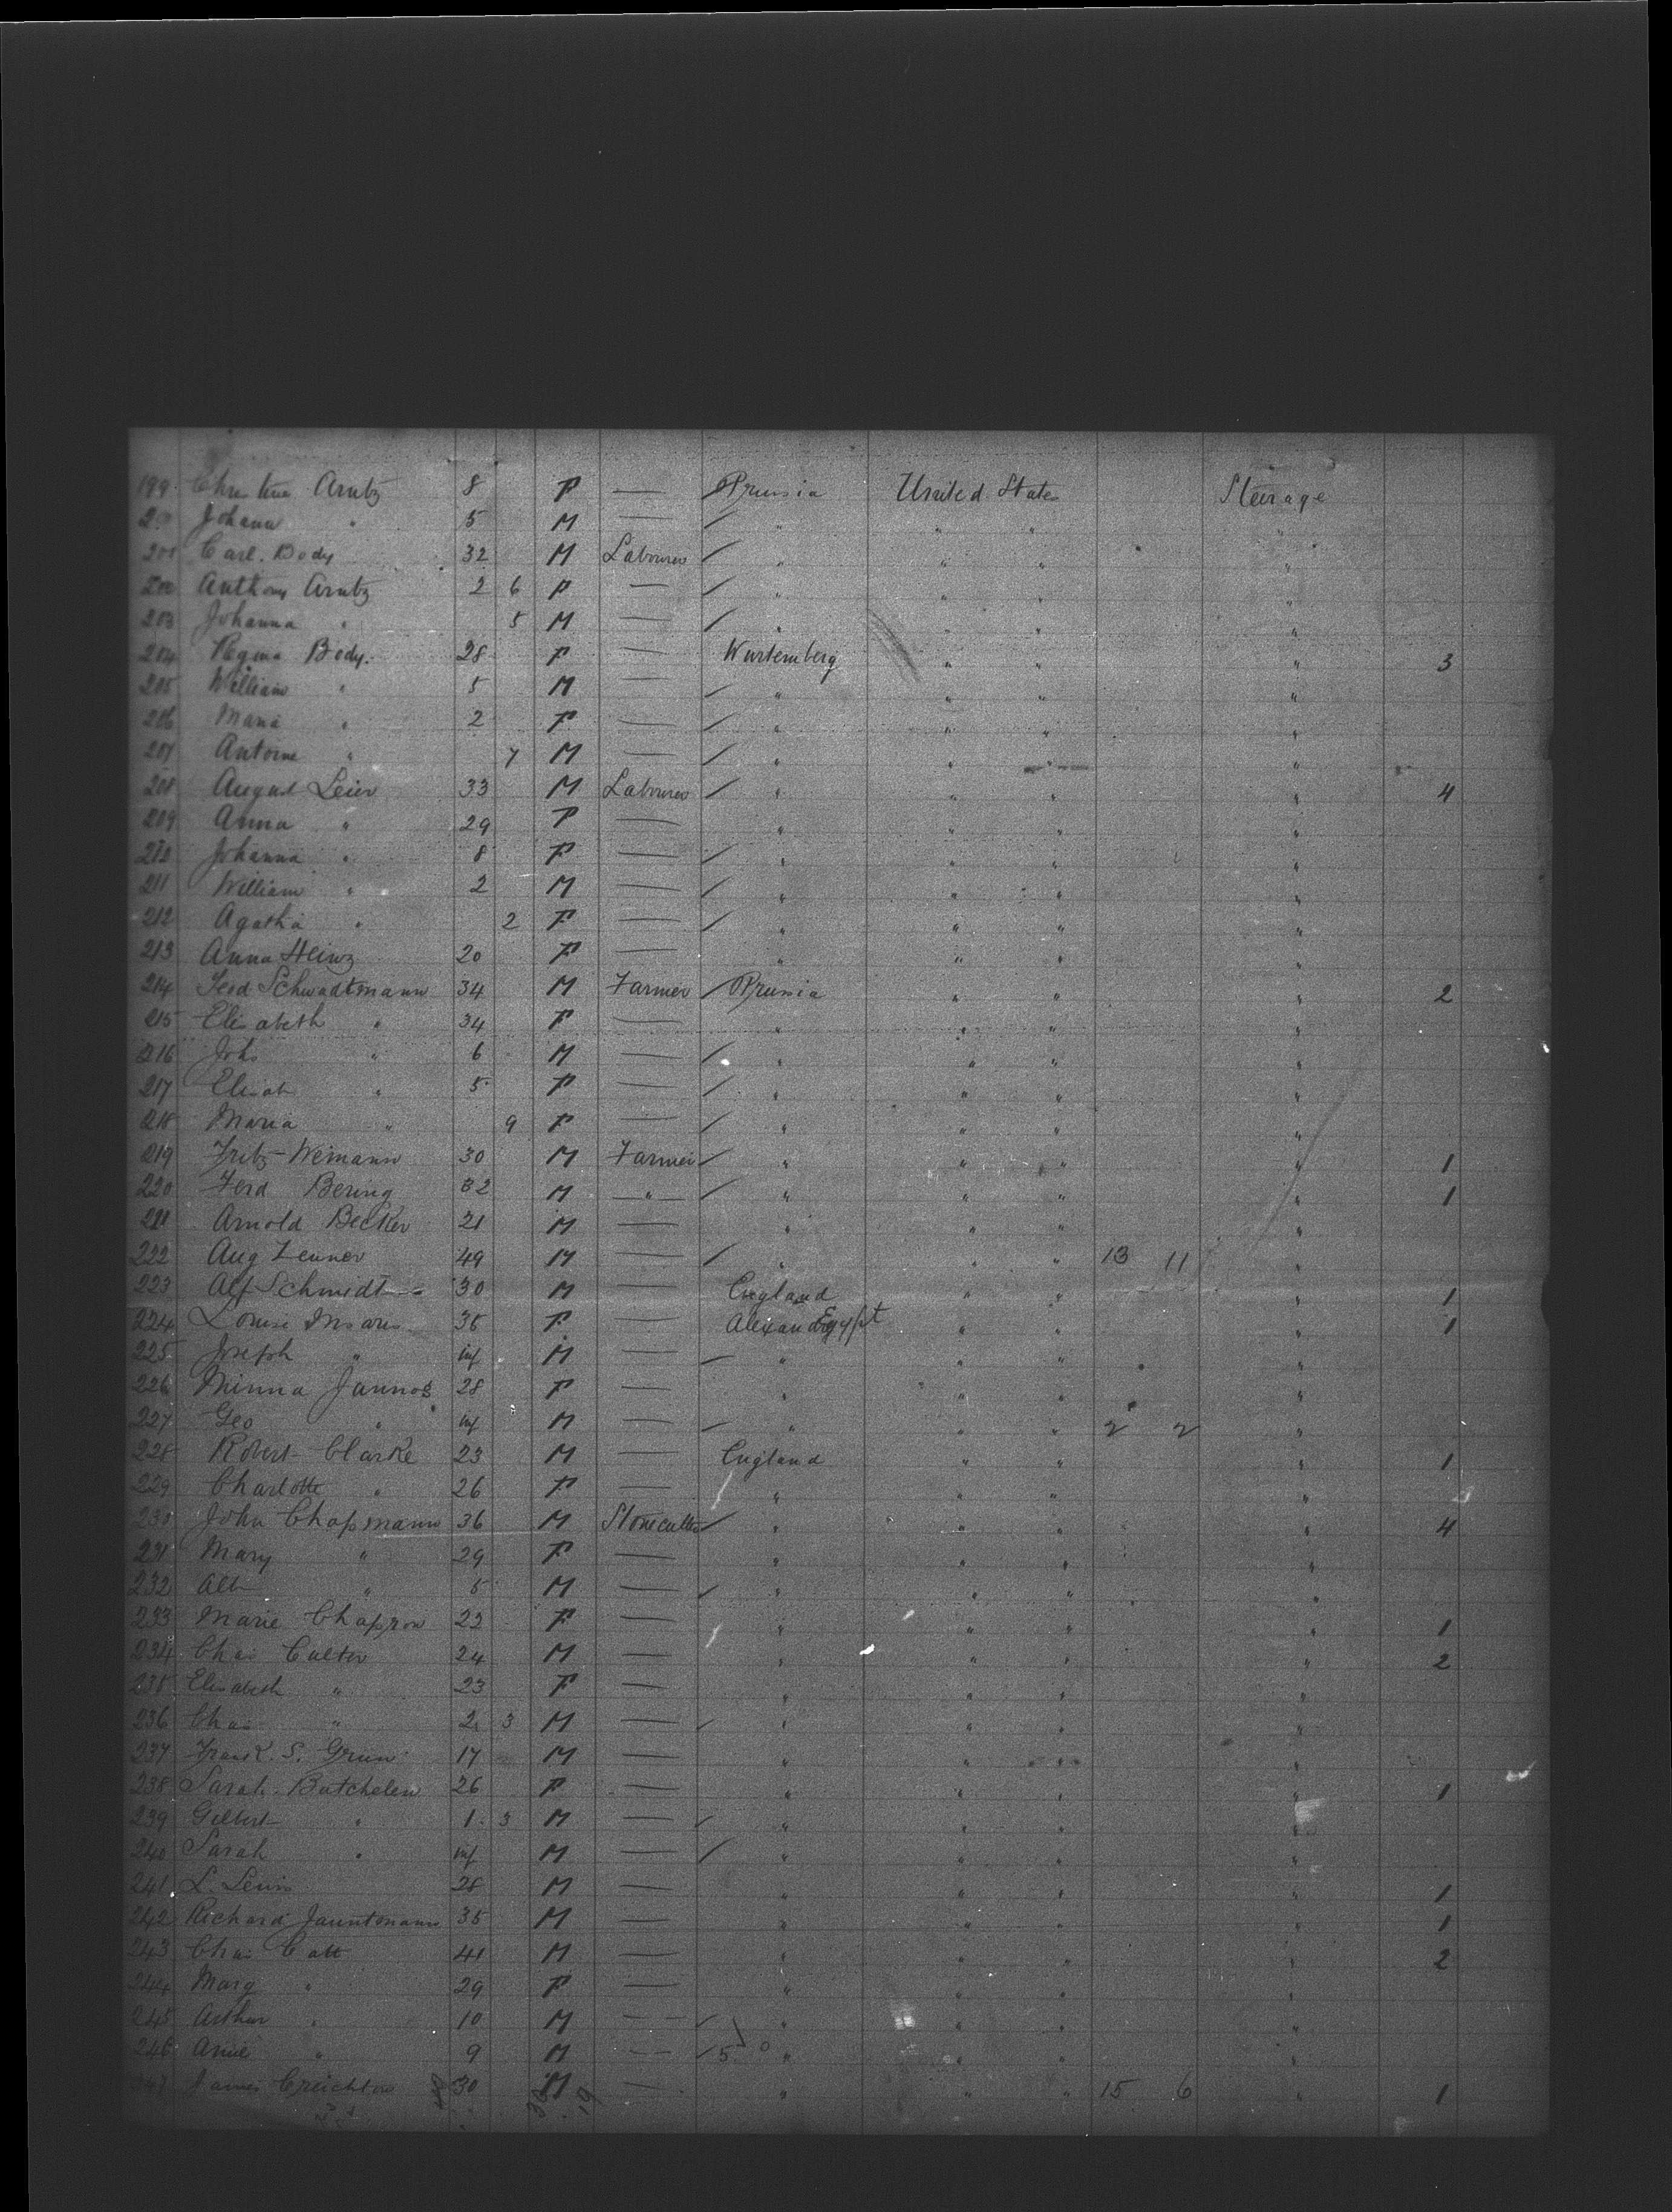 199 Christina Arntz 8 F — Prussia United States Steerage
200 Johann " 5 M — " " " "
201 Carl. Body 32 M Labourer " " " "
202 Anthony Arntz 2 6 F — " " " "
203 Johanna " 5 M — " " " "
204 Regina Body. 28 F — Wurtemberg " " " 3
205 William " 5 M — " " " "
206 Maria " 2 F — " " " "
207 Antoine " 7 M — " " " "
208 August Leier 33 M Labourer " " " " 4
209 Anna " 29 F — " " " "
210 Johanna " 8 F — " " " "
211 William " 2 M — " " " "
212 Agatha " 2 F — " " " "
213 Anna Heinz 20 F — " " " "
214 Ferd Schwadtmann 34 M Farmer Prussia " " " 2
215 Elisabeth " 34 F — " " " "
216 Johs " 6 M — " " " "
217 Elisab " 5 F — " " " "
218 Maria " 9 F — " " " "
219 Fritz Weimann 30 M Farmer " " " " 1
220 Ferd Bering 32 M " " " " " 1
221 Arnold Becker 21 M — " " " "
222 Aug Zenner 49 M — " " " 13 11 "
223 Alf Schmidt 30 M — England " " " 1
224 Louise 36 F — Egypt " " " 1
225 Joseph " inf M — " " " "
226 Minna Jannos 28 F — " " " "
227 Geo " inf M — " " " 2 2 "
228 Robert Clarke 23 M — England " " " 1
229 Charlotte " 26 F — " " " "
230 John Chapmann 36 M Stonecutter " " " " 4
231 Mary " 29 F — " " " "
232 Alb " 5 M — " " " "
233 Marie 22 F — " " " " 1
234 Chas Culter 24 M — " " " " 2
235 Elisabeth " 23 F — " " " "
236 Chas " 2 3 M — " " " "
237 Frank. S. 17 M — " " " "
238 Sarah Butchelew 26 F — " " " " 1
239 Gilbert " 1 3 M — " " " "
240 Sarah " inf M — " " " "
241 L. Lewis 28 M — " " " " 1
242 Richard Jauntmann 35 M — " " " " 1
243 Chas Catt 41 M — " " " " 2
244 Mary " 29 F — " " " "
245 Arthur " 10 M — " " " "
246 Amie " 9 M — 5 0 " " " "
247 James Creichton 30 M — " " " 15 6 " 1